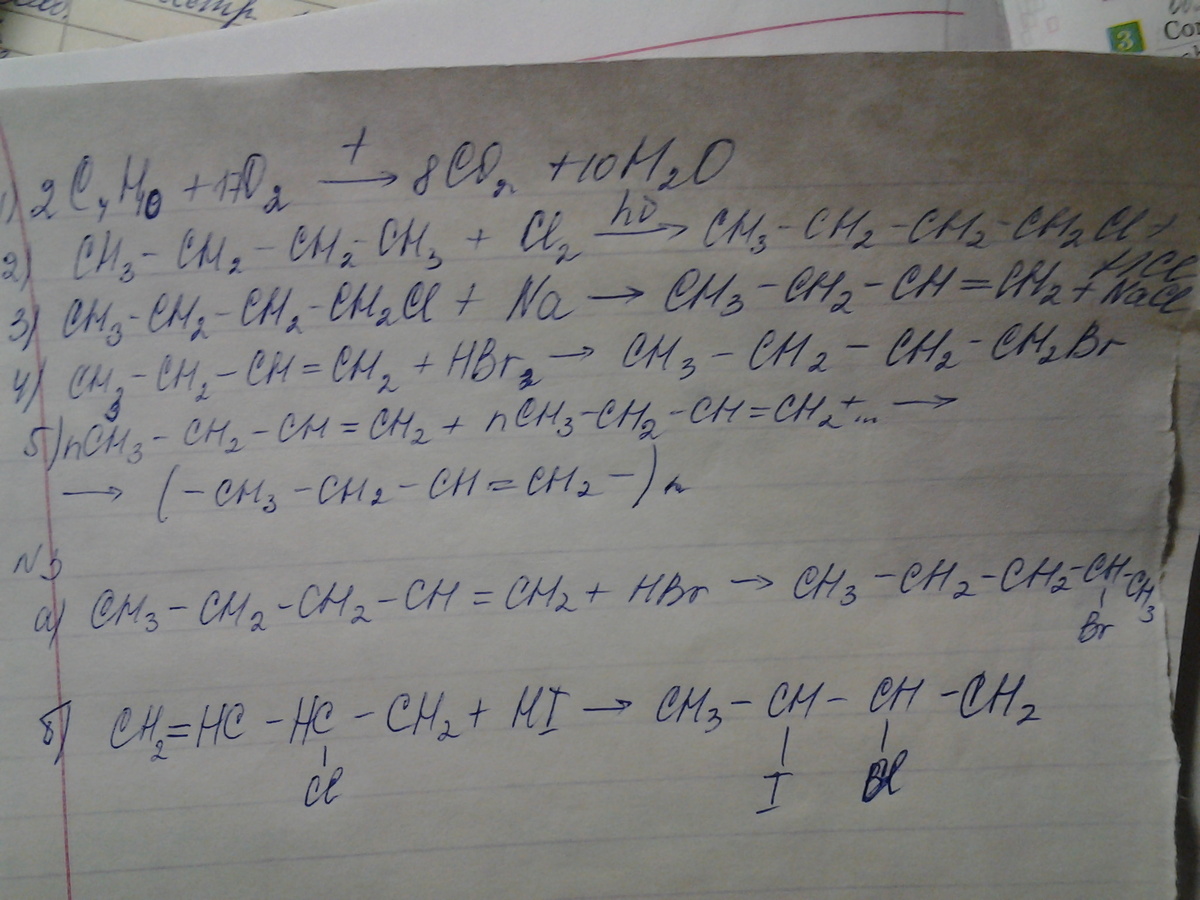 3
1) 2C₄H₁₀ + 17O₂ —t→ 8CO₂ + 10H₂O
2) CH₃ - CH₂ - CH₂ - CH₃ + Cl₂ —hν→ CH₃ - CH₂ - CH₂ - CH₂Cl + HCl
3) CH₃ - CH₂ - CH₂ - CH₂Cl + Na → CH₃ - CH₂ - CH = CH₂ + NaCl
4) CH₃ - CH₂ - CH = CH₂ + HBr₂ → CH₃ - CH₂ - CH₂ - CH₂Br
5) nCH₃ - CH₂ - CH = CH₂ + nCH₃ - CH₂ - CH = CH₂ + ... →
→ (- CH₃ - CH₂ - CH = CH₂ -)n
N3
а) CH₃ - CH₂ - CH₂ - CH = CH₂ + HBr → CH₃ - CH₂ - CH₂ - CH - CH₃
Br
б) CH₂ = HC - HC - CH₂ + HI → CH₃ - CH - CH - CH₂
Cl I Cl